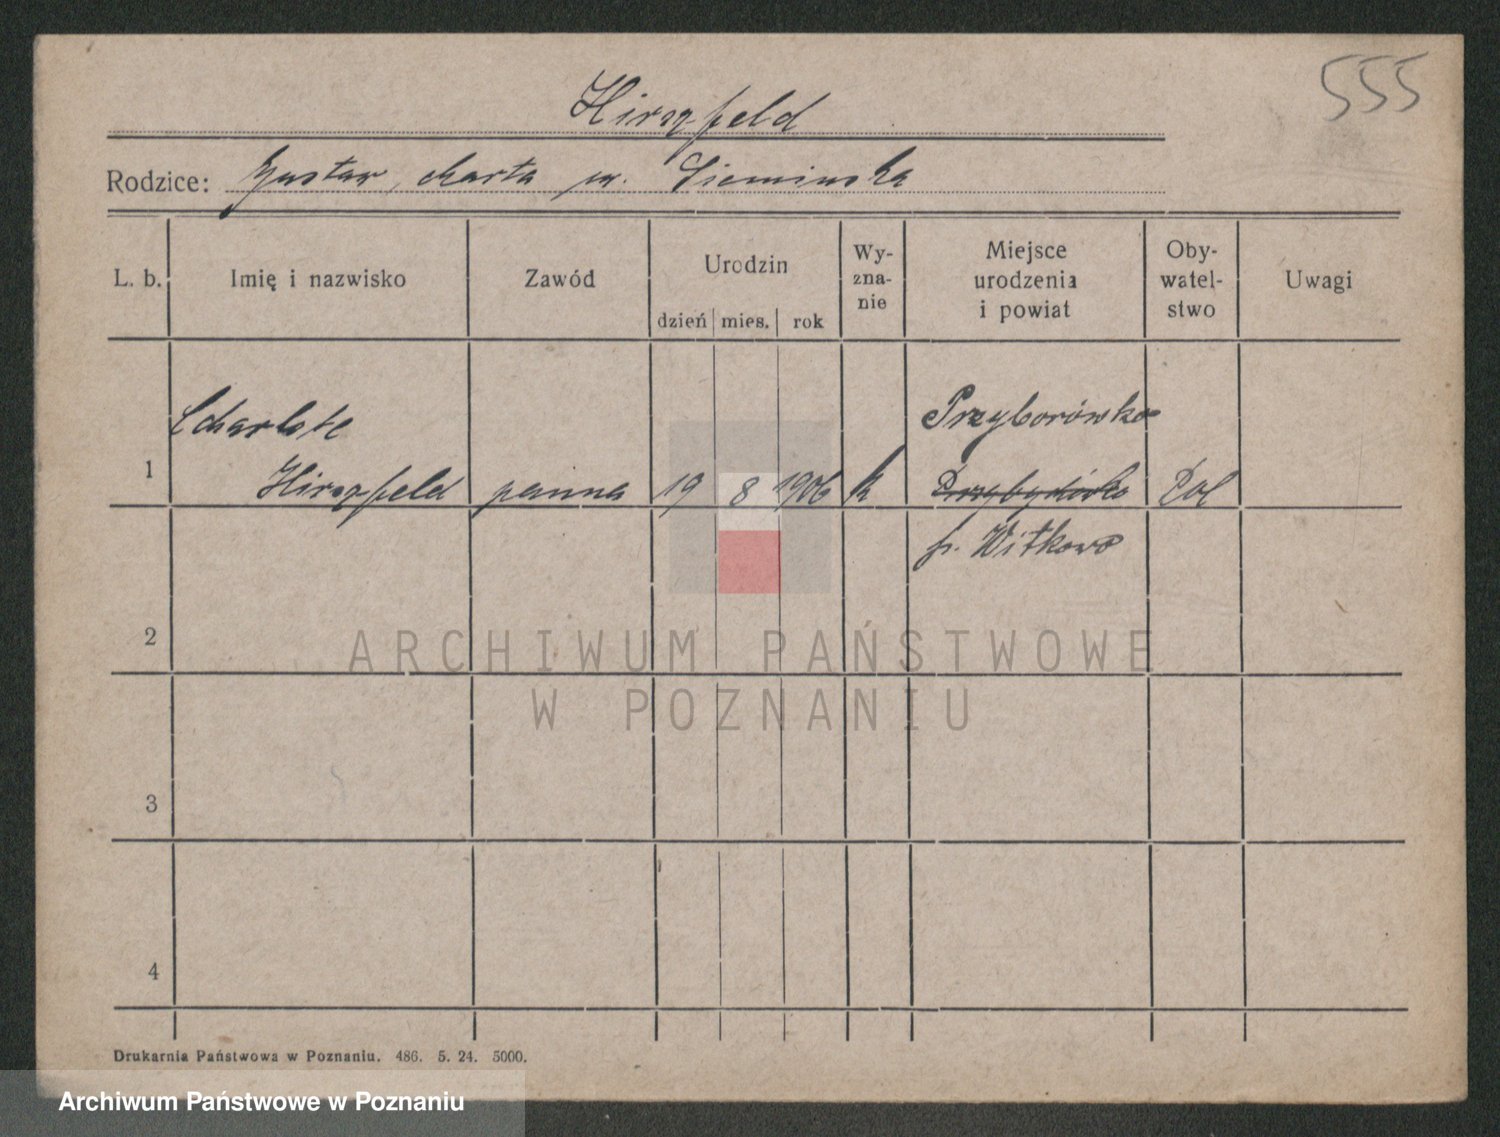 555
Hirszfeld
Rodzice: Gustav, Marta ur. Siemińska
L. b.
Imię i nazwisko
Zawód
Urodzin
dzień mies. rok
Wy-
zna-
nie
Miejsce
urodzenia
i powiat
Oby-
watel-
stwo
Uwagi
Charlote
Przyborówko
1 Hirszfeld panna 19 8 1906 k Pol
p. Witkowo
2
3
4
ARCHIWUM PAŃSTWOWE
W POZNANIU
Drukarnia Państwowa w Poznaniu. 486. 5. 24. 5000.
Archiwum Państwowe w Poznaniu